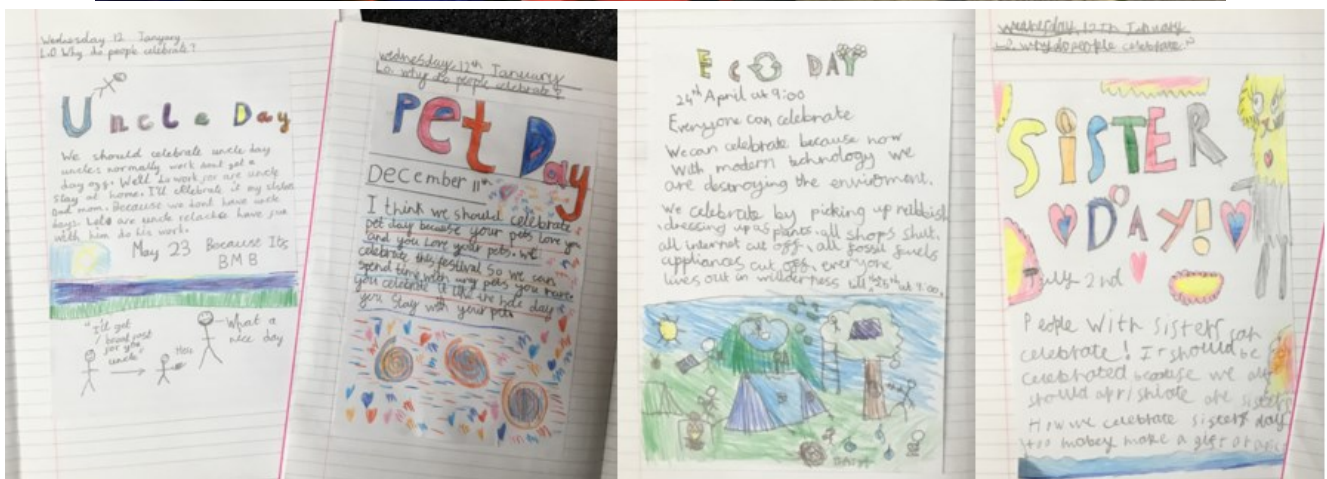 Wednesday 12 January
L.O Why do people celebrate?
Uncle Day
We should celebrate uncle day
uncles normally work dont get a
day off. Well do work for are uncle
Stay at home. I'll ellebrate it my sister
Dad mom. Because we dont have uncle
days. Lets are uncle relacks have fun
with him do his work.
May 23 Because Its
BMB
"I'll get
breakfast
for you
uncle"
Here
What a
nice day
wednesday 12th January
Lo. why do people celebrate?
Pet Day
December 11th
I think we should celebrate
pet day because your pets love you
and you love your pets. we
celebrate this festival so we can
spend time with any pets you have
you celebrate it like the hole day
you stay with your pets
ECO DAY
24th April at 9:00
Everyone can celebrate
We can celebrate because now
with modern technology we
are destroying the enviroment.
We celebrate by picking up rubbish
dressing up as plants, all shops shut,
all internet cut off, all fossil fuels
appliances cut off, everyone
lives out in wilderness till 25th at 9:00.
Wednesday, 12Th January
L.o why do people celebrate?
SISTER
DAY!
July 2nd
People with sisters can
celebrate! It should be
celebrated because we all
should aprishiate are sisters
How we celebrate sisters day
make a gift or